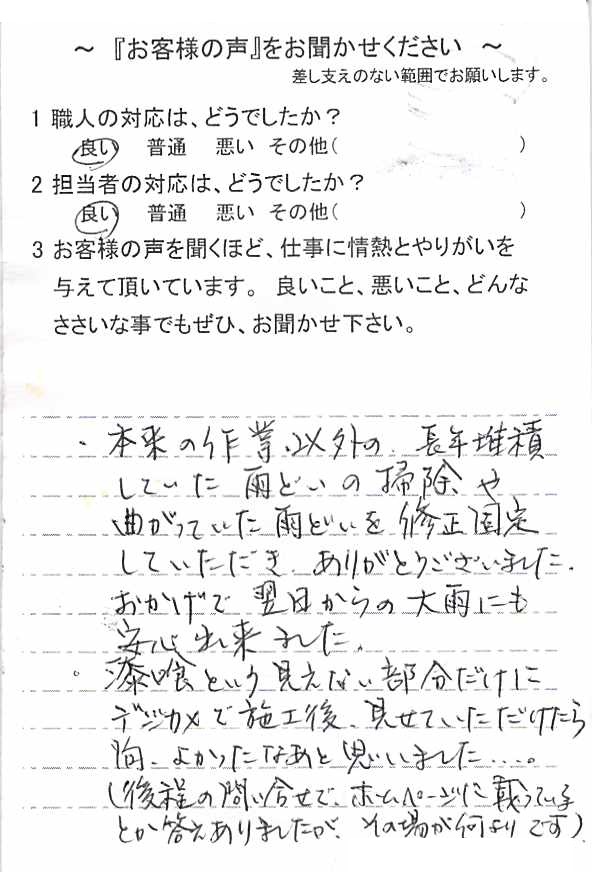 ～ 『お客様の声』をお聞かせください ～
差し支えのない範囲でお願いします。
1 職人の対応は、どうでしたか？
良い 普通 悪い その他( )
2 担当者の対応は、どうでしたか？
良い 普通 悪い その他( )
3 お客様の声を聞くほど、仕事に情熱とやりがいを
与えて頂いています。 良いこと、悪いこと、どんな
ささいな事でもぜひ、お聞かせ下さい。
・本来の作業以外の、長年堆積
していた雨どいの掃除や
曲がっていた雨どいを修正固定
していただき、ありがとうございました。
おかげで翌日からの大雨にも
安心出来ました。
。漆喰という見えない部分だけに
デジカメで施工後、見せていただけたら
尚、よかったなあと思いました....。
(後程の問い合せで、ホームページに載っている
とか答えありましたが、その場が何よりです)